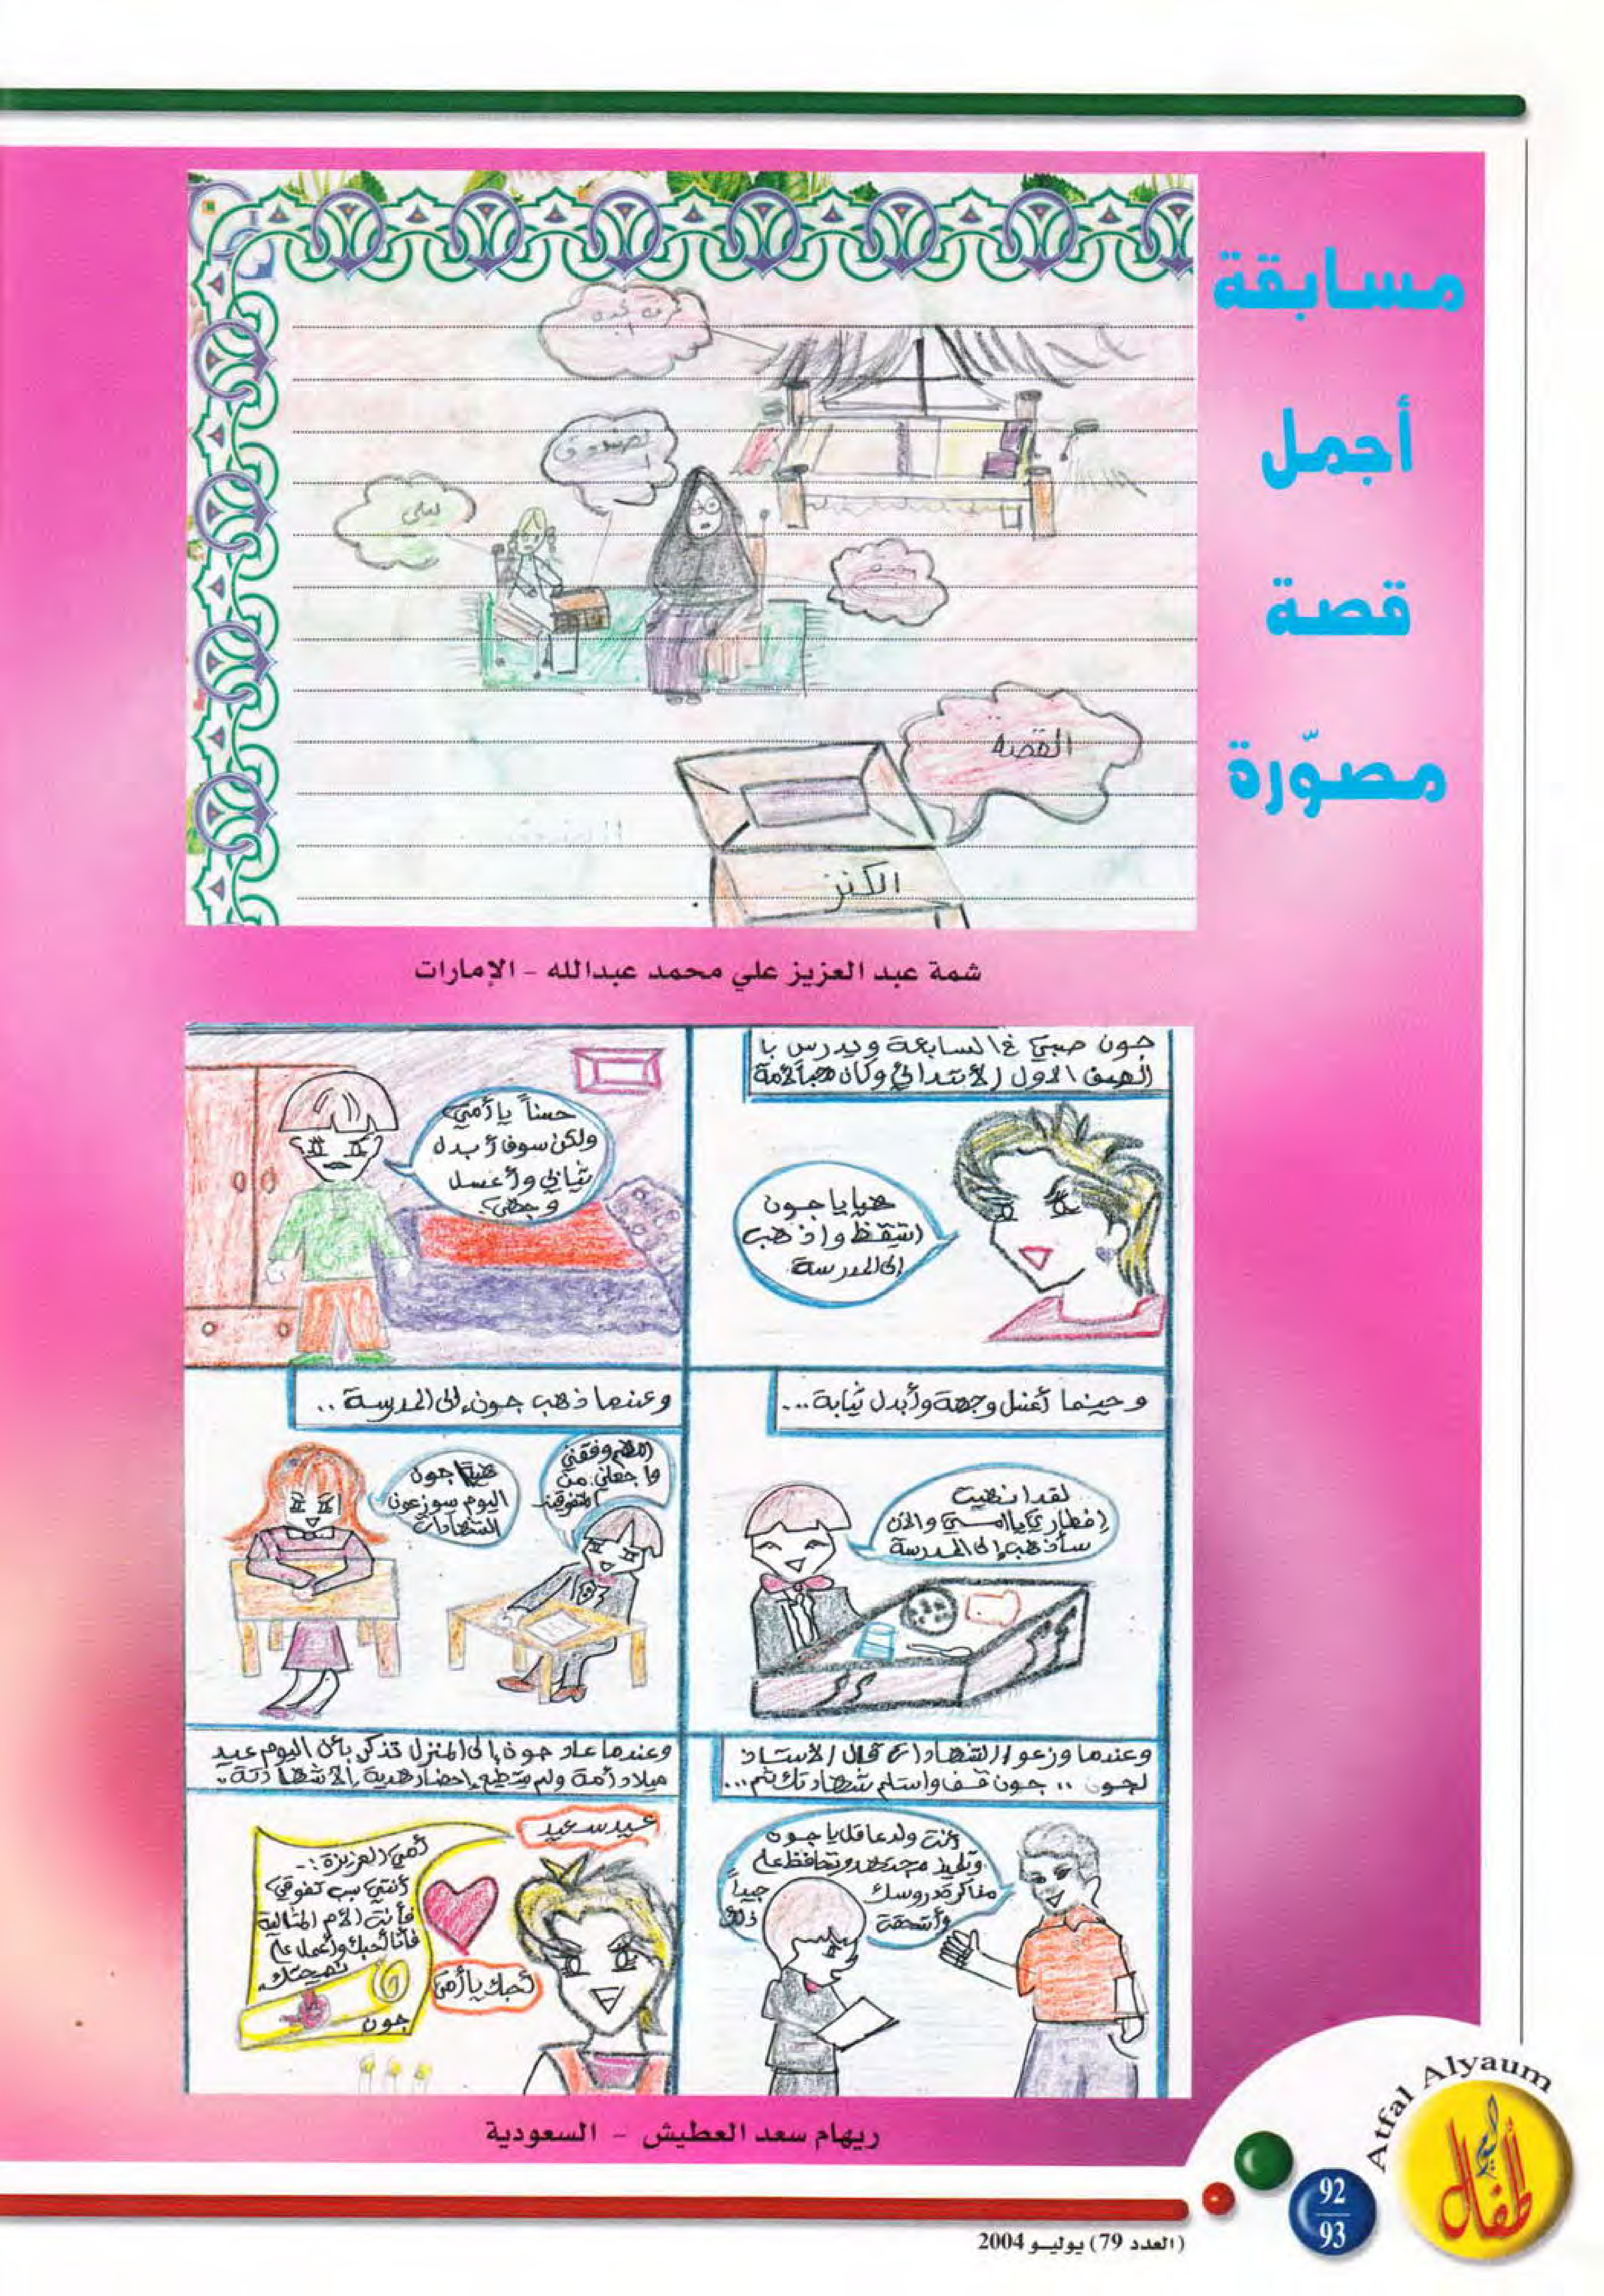 مسابقة
أجمل
قصة
مصوّرة
غرفة الجدة
الصندوق
ليلى
القصة
الكنز
شمة عبد العزيز علي محمد عبدالله - الإمارات
جون صبي في السابعة ويدرس با
الصف الاول الأبتدائي وكان محباً لأمة
هيا يا جون
استيقظ واذهب
إلى المدرسة
حسناً يا أمي
ولكن سوف أبدل
ثيابي وأغسل
وجهي
وحينما أغسل وجهة وأبدل ثيابة...
لقد انهيت
إفطاري يا امي والآن
سأذهب إلى المدرسة
وعندما ذهب جون إلى المدرسة ..
اللهم وفقني
واجعلني من
المتفوقين
هيا جون
اليوم سوزعون
الشهادات
وعندما وزعوا الشهادات قال الأستاذ
لجون .. جون قف واستلم شهادتك ثم...
أنت ولد عاقل يا جون
وتلميذ مجتهد وتحافظ على
مذاكرة دروسك جيداً
وأستحقة ذلك
وعندما عاد جون إلى المنزل تذكر بأن اليوم عيد
ميلاد أمة ولم يستطيع إحضار هدية إلا شهادتة..
عيد سعيد
أمي العزيزة :-
أنتي سبب تفوقي
فأنت الأم المثالية
فأنا أحبك وأعمل على
نصيحتك
جون
أحبك يا أمي
ريهام سعد العطيش - السعودية
Atfal Alyaum
أطفال اليوم
92
93
(العدد 79) يوليو 2004